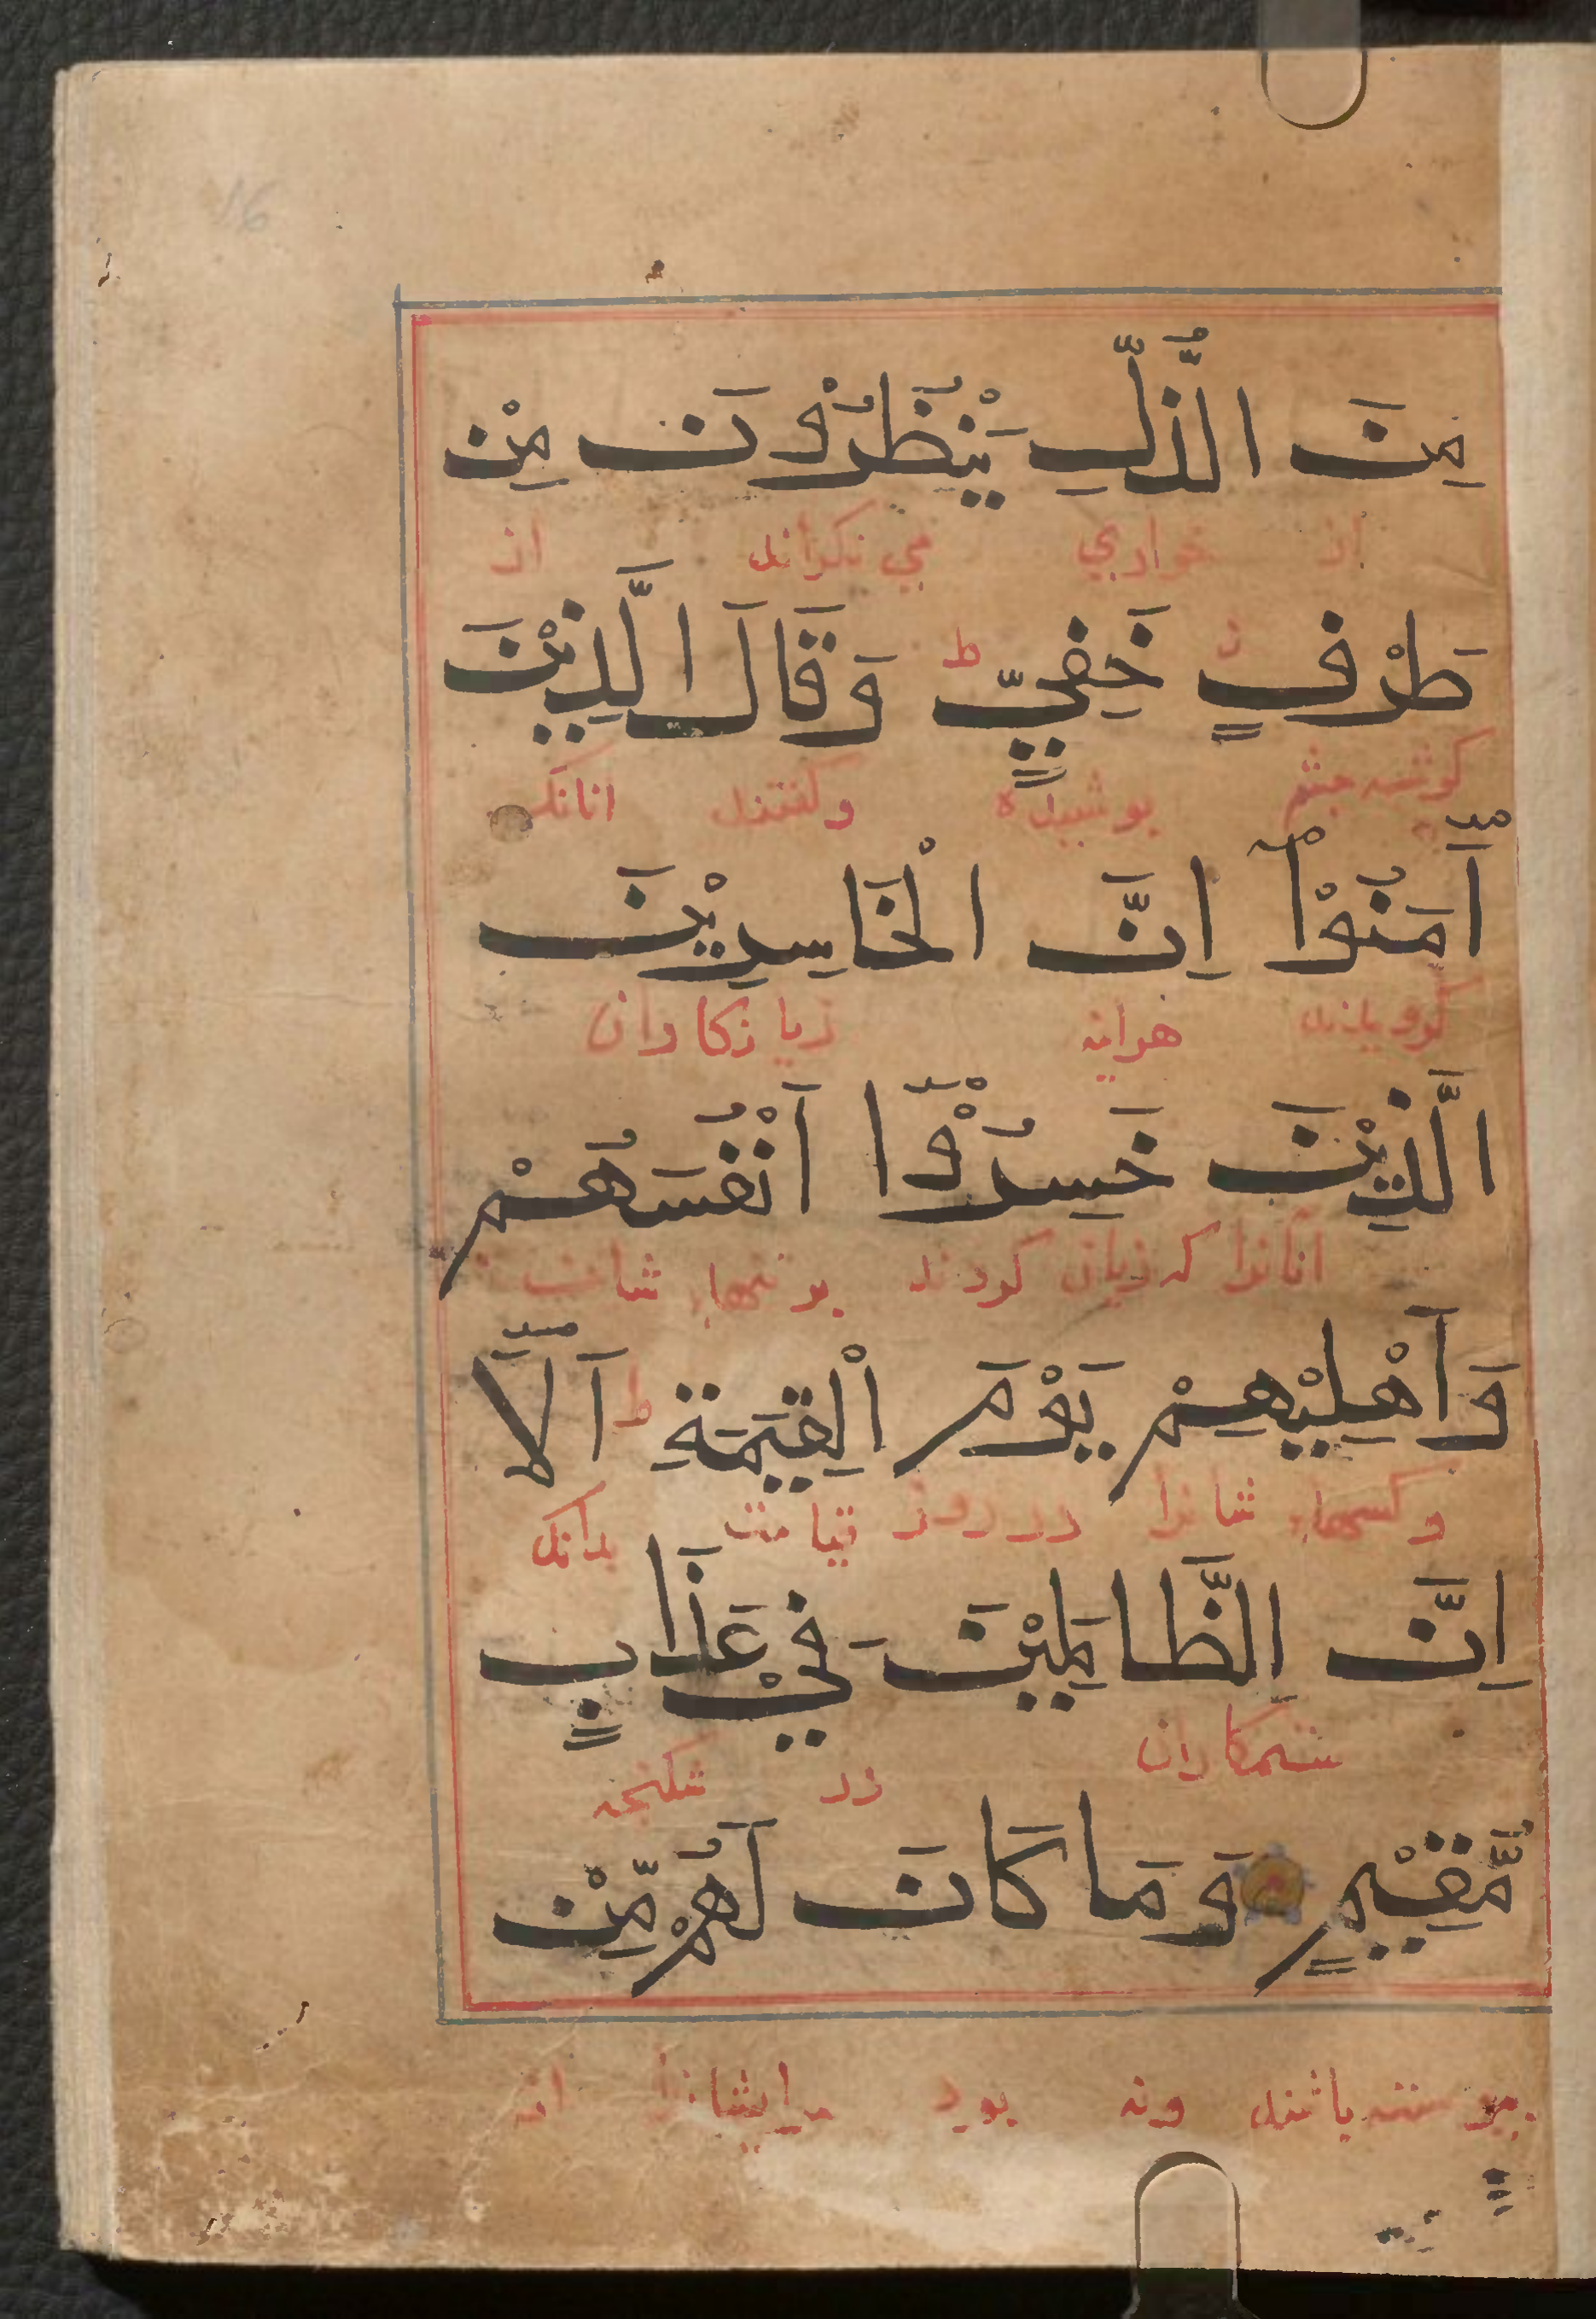 مِنَ الذُّلِّ يَنْظُرُوْنَ مِنْ
از خواريي مي نكرانند از
طَرْفٍ خَفِيٍّ ط وَقَالَ الَّذِيْنَ
كوشه چشم پوشيده وكفتند انانك
اٰمَنُوْٓا اِنَّ الْخَاسِرِيْنَ
كرويدند هراينه زيانكاران
الَّذِيْنَ خَسِرُوْٓا اَنْفُسَهُمْ
انانرا كه زيان كردند بر تنهاء شان
وَاَهْلِيْهِمْ يَوْمَ الْقِيٰمَةِ ط اَلَآ
وكسهاء شانرا در روز قيامت بدانك
اِنَّ الظَّالِمِيْنَ فِيْ عَذَابٍ
ستمكاران در شكنجه
مُّقِيْمٍ وَمَا كَانَ لَهُمْ مِّنْ
پيوسته باشند ونه بود مرايشانرا از